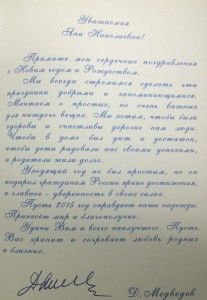 Уважаемая
Яна Николаевна!
Примите мои сердечные поздравления
с Новым годом и Рождеством.
Мы всегда стремимся сделать эти
праздники добрыми и запоминающимися.
Мечтаем о простых, но очень важных
для каждого вещах. Мы хотим, чтобы были
здоровы и счастливы дорогие нам люди.
Чтобы в доме был уют и достаток,
чтобы дети радовали нас своими успехами,
а родители жили долго.
Уходящий год не был простым, но он
подарил гражданам России яркие достижения,
а главное - уверенность в своих силах.
Пусть 2015 год оправдает наши надежды.
Принесёт мир и благополучие.
Удачи Вам и всего наилучшего. Пусть
Вас хранит и согревает любовь родных
и близких.
Д. Медведев